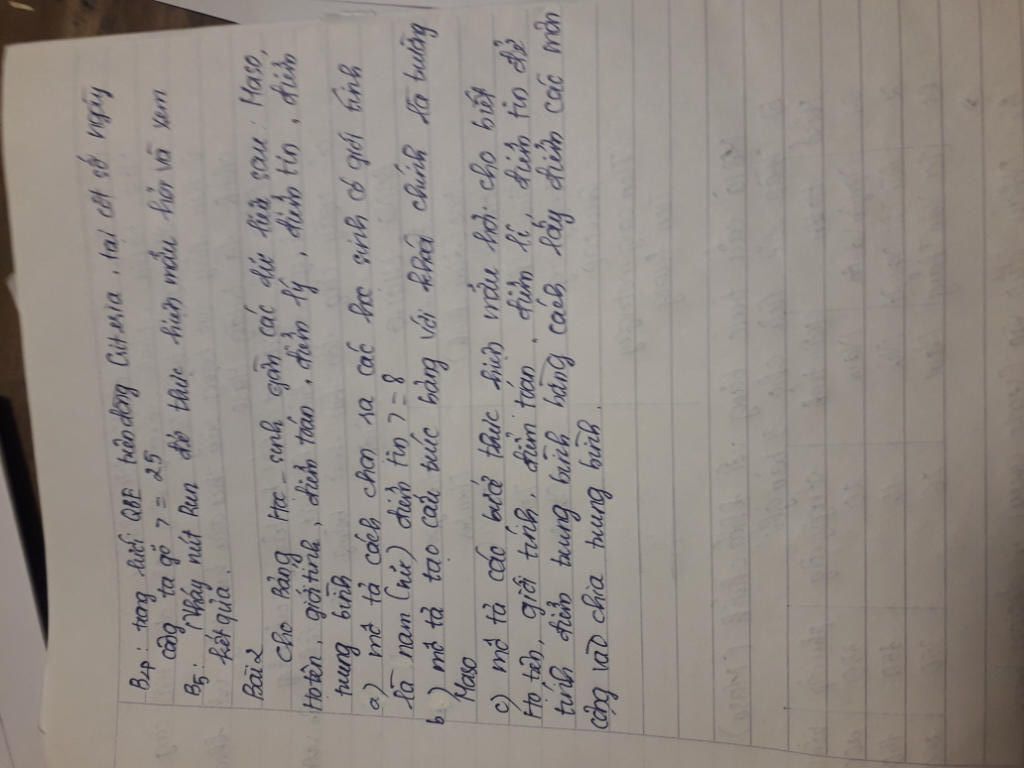 B4: trong lưới QBE trên dòng Criteria, tại cột số ngày
công ta gõ >= 25
B5: Nháy nút Run để thực hiện mẫu hỏi và xem
kết quả.
Bài 2
Cho Bảng Hoc_sinh gồm các dữ liệu sau: Maso,
Hoten, giới tính, điểm toán, điểm lý, điểm tin, điểm
trung bình
a) mô tả cách chọn ra các học sinh có giới tính
là nam (nữ) điểm tin >= 8
b) mô tả tạo cấu trúc bảng với khoá chính là trường
Maso
c) mô tả các bước thực hiện mẫu hỏi cho biết
Họ tên, giới tính, điểm toán, điểm lí, điểm tin để
tính điểm trung bình bằng cách lấy điểm các môn
cộng vào chia trung bình.